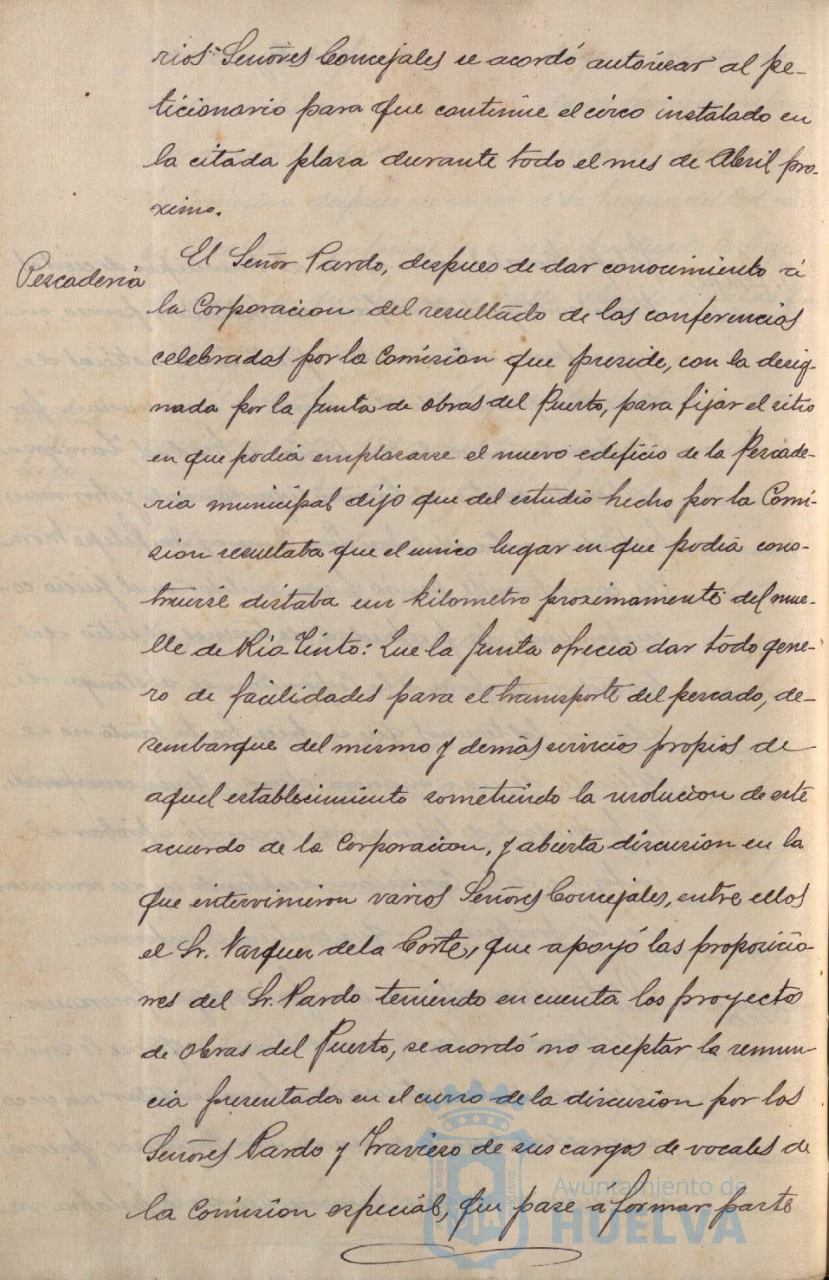 rios Señores Concejales se acordó autorizar al pe-
ticionario para que continue el circo instalado en
la citada plaza durante todo el mes de Abril pro-
ximo.
Pescaderia
El Señor Pardo, despues de dar conocimiento á
la Corporacion del resultado de las conferencias
celebradas por la Comision que preside, con la desig-
nada por la Junta de obras del Puerto, para fijar el sitio
en que podia emplazarse el nuevo edificio de la Pescade-
ria municipal dijo que del estudio hecho por la Comi-
sion resultaba que el unico lugar en que podia cons-
truirse distaba un kilometro proximamente del mue-
lle de Rio-Tinto: Que la Junta ofrecia dar todo gene-
ro de facilidades para el transporte del pescado, de-
sembarque del mismo y demás servicios propios de
aquel establecimiento sometiendo la resolucion de este
acuerdo de la Corporacion, y abierta discusion en la
que intervinieron varios Señores Concejales, entre ellos
el Sr. Vazquez de la Corte, que apoyó las proposicio-
nes del Sr. Pardo teniendo en cuenta los proyectos
de obras del Puerto, se acordó no aceptar la renun-
cia presentada en el curso de la discusion por los
Señores Pardo y Travieso de sus cargos de vocales de
la Comision especial, que pase a formar parte
Ayuntamiento de
HUELVA